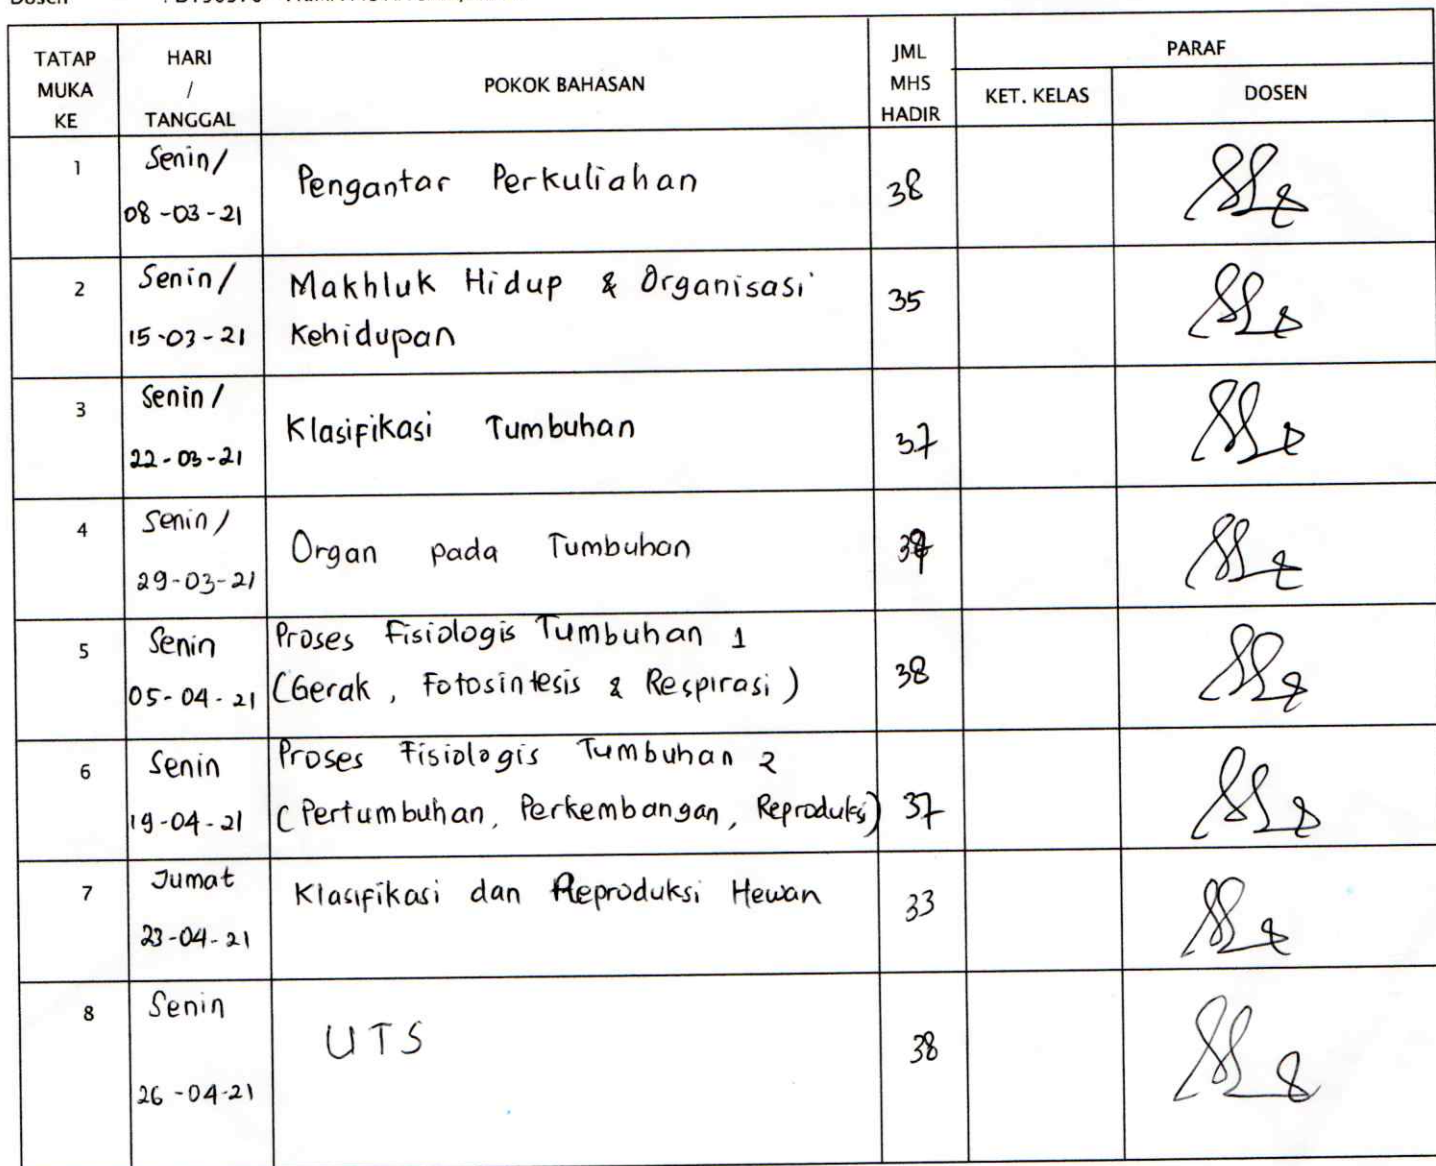 Dosen
TATAP MUKA KE
HARI / TANGGAL
POKOK BAHASAN
JML MHS HADIR
PARAF
KET. KELAS
DOSEN
1
Senin/
08-03-21
Pengantar Perkuliahan
38
2
Senin/
15-03-21
Makhluk Hidup & Organisasi
Kehidupan
35
3
Senin/
22-03-21
Klasifikasi Tumbuhan
37
4
Senin/
29-03-21
Organ pada Tumbuhan
5
Senin
05-04-21
Proses Fisiologis Tumbuhan 1
(Gerak, Fotosintesis & Respirasi)
38
6
Senin
19-04-21
Proses Fisiologis Tumbuhan 2
(Pertumbuhan, Perkembangan, Reproduksi)
37
7
Jumat
23-04-21
Klasifikasi dan Reproduksi Hewan
33
8
Senin
26-04-21
UTS
38